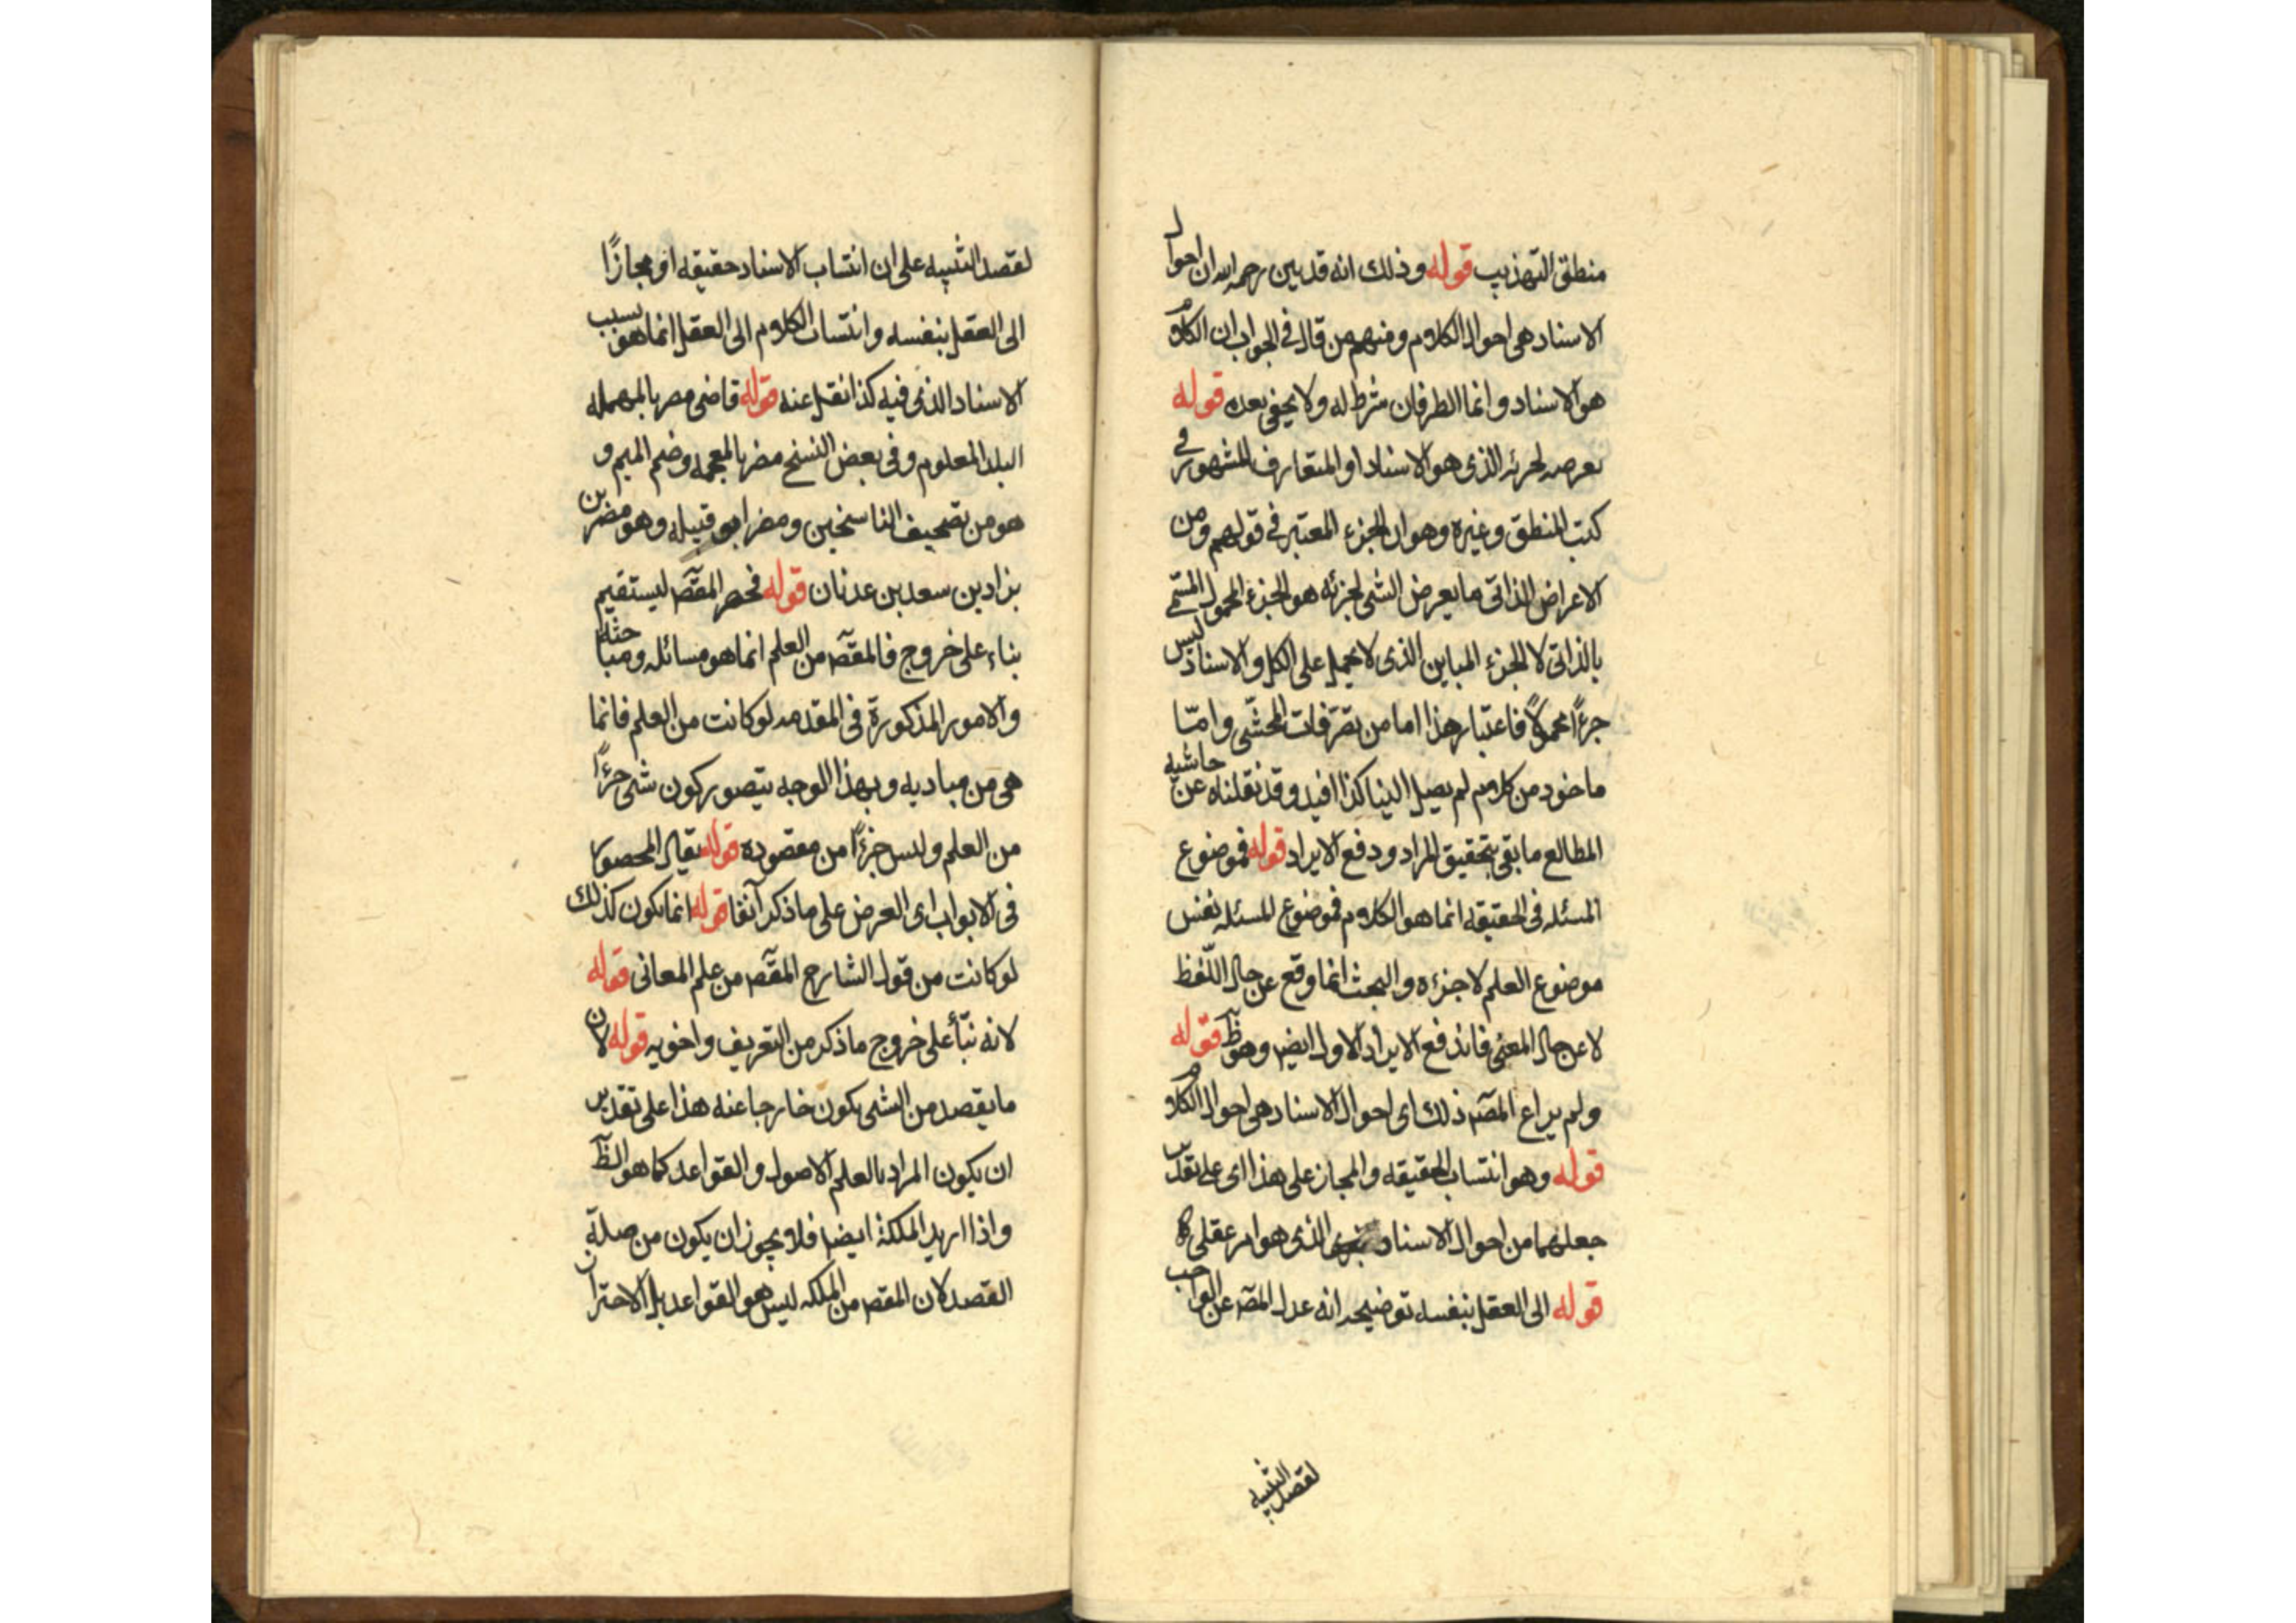 منطق التهذيب قوله وذلك انه قد بين رحمه الله ان احوال
الاسناد هى احوال الكلام ومنهم من قال فى الجواب ان الكلام
هو الاسناد وانما الطرفان شرط له ولا يخفى بعده قوله
بعرضه لجزئه الذى هو الاسناد او المتعارف المشهور فى
كتب المنطق وغيره وهو ان الجزء المعتبر فى قولهم ومن
الاعراض الذاتى ما يعرض الشى لجزئه هو الجزء المحمول المسمى
بالذاتى لا الجزء المباين الذى لا يحمل على الكل والاسناد ليس
جزءًا محمولاً فاعتبار هذا اما من تصرّفات المحشّى وامّا
ماخوذ من كلام لم يصل الينا كذا افيد وقد نقلناه عن حاشيه
المطالع ما بقى بتحقيق المراد ودفع الايراد قوله فموضوع
المسئله فى الحقيقه انما هو الكلام فموضوع المسئله نفس
موضوع العلم لا جزءه والبحث انما وقع عن حال اللّفظ
لا عن حال المعنى فاندفع الايراد الاول ايضا وهو ظ قوله
ولم يراع المصّ ذلك اى احوال الاسناد هى احوال الكلام
قوله وهو انتساب الحقيقه والمجاز على هذا اى على تقدير
جعلهما من احوال الاسناد الذى هو امر عقلى
قوله الى العقل بنفسه توضيحه انه عدل المصّ عن الواجب
لقصد التنبيه
لقصد التنبيه على ان انتساب الاسناد حقيقه او مجازًا
الى العقل بنفسه وانتساب الكلام الى العقل انما هو بسبب
الاسناد الذى فيه كذا نقل عنه قوله قاضى مصر بالمهمله
البلد المعلوم وفى بعض النسخ مضر بالمعجمه وضم الميم و
هو من تصحيف الناسخين ومضر ابو قبيله وهو مضر بن
نزاد بن سعد بن عدنان قوله فحصر المقصّ ليستقيم
بناء على خروج فالمقصّ من العلم انما هو مسائله ومباحثه
والامور المذكورة فى المقدمه لو كانت من العلم فانما
هى من مباديه وبهذا الوجه يتصور كون شى جزءًا
من العلم وليس جزءًا من مقصوده قوله يقال المحصور
فى الابواب اى العرض على ما ذكر آنفا قوله انما يكون كذلك
لو كانت من قول الشارح المقصّ من علم المعانى قوله
لانه نبّأ على خروج ما ذكر من التعريف واخويه قوله لان
ما يقصد من الشى يكون خارجا عنه هذا على تقدير
ان يكون المراد بالعلم الاصول والقواعد كما هو الظ
واذا اريد الملكة ايضا فلا يجوز ان يكون من صلة
القصد لان المقصّ من الملكه ليس هو القواعد بل الاحتراز